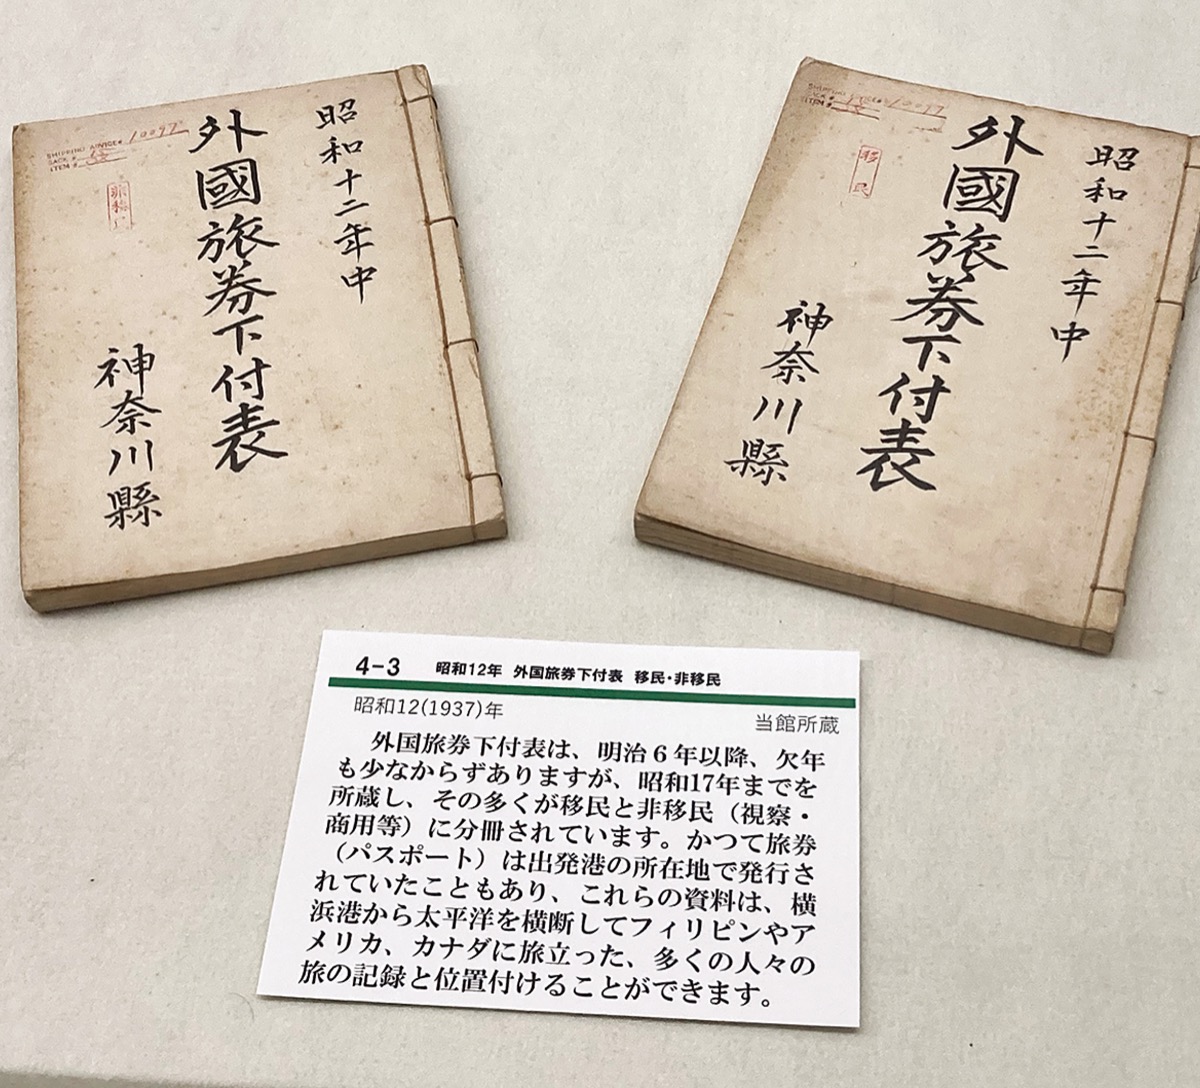 昭和十二年中
外國旅券下付表
神奈川縣
SHIPPING ADVICE# 10097
SACK #
ITEM #
昭和十二年中
外國旅券下付表
神奈川縣
移民
4-3 昭和12年 外国旅券下付表 移民・非移民
昭和12(1937)年
当館所蔵
外国旅券下付表は、明治6年以降、欠年
も少なからずありますが、昭和17年までを
所蔵し、その多くが移民と非移民（視察・
商用等）に分冊されています。かつて旅券
（パスポート）は出発港の所在地で発行さ
れていたこともあり、これらの資料は、横
浜港から太平洋を横断してフィリピンやア
メリカ、カナダに旅立った、多くの人々の
旅の記録と位置付けることができます。